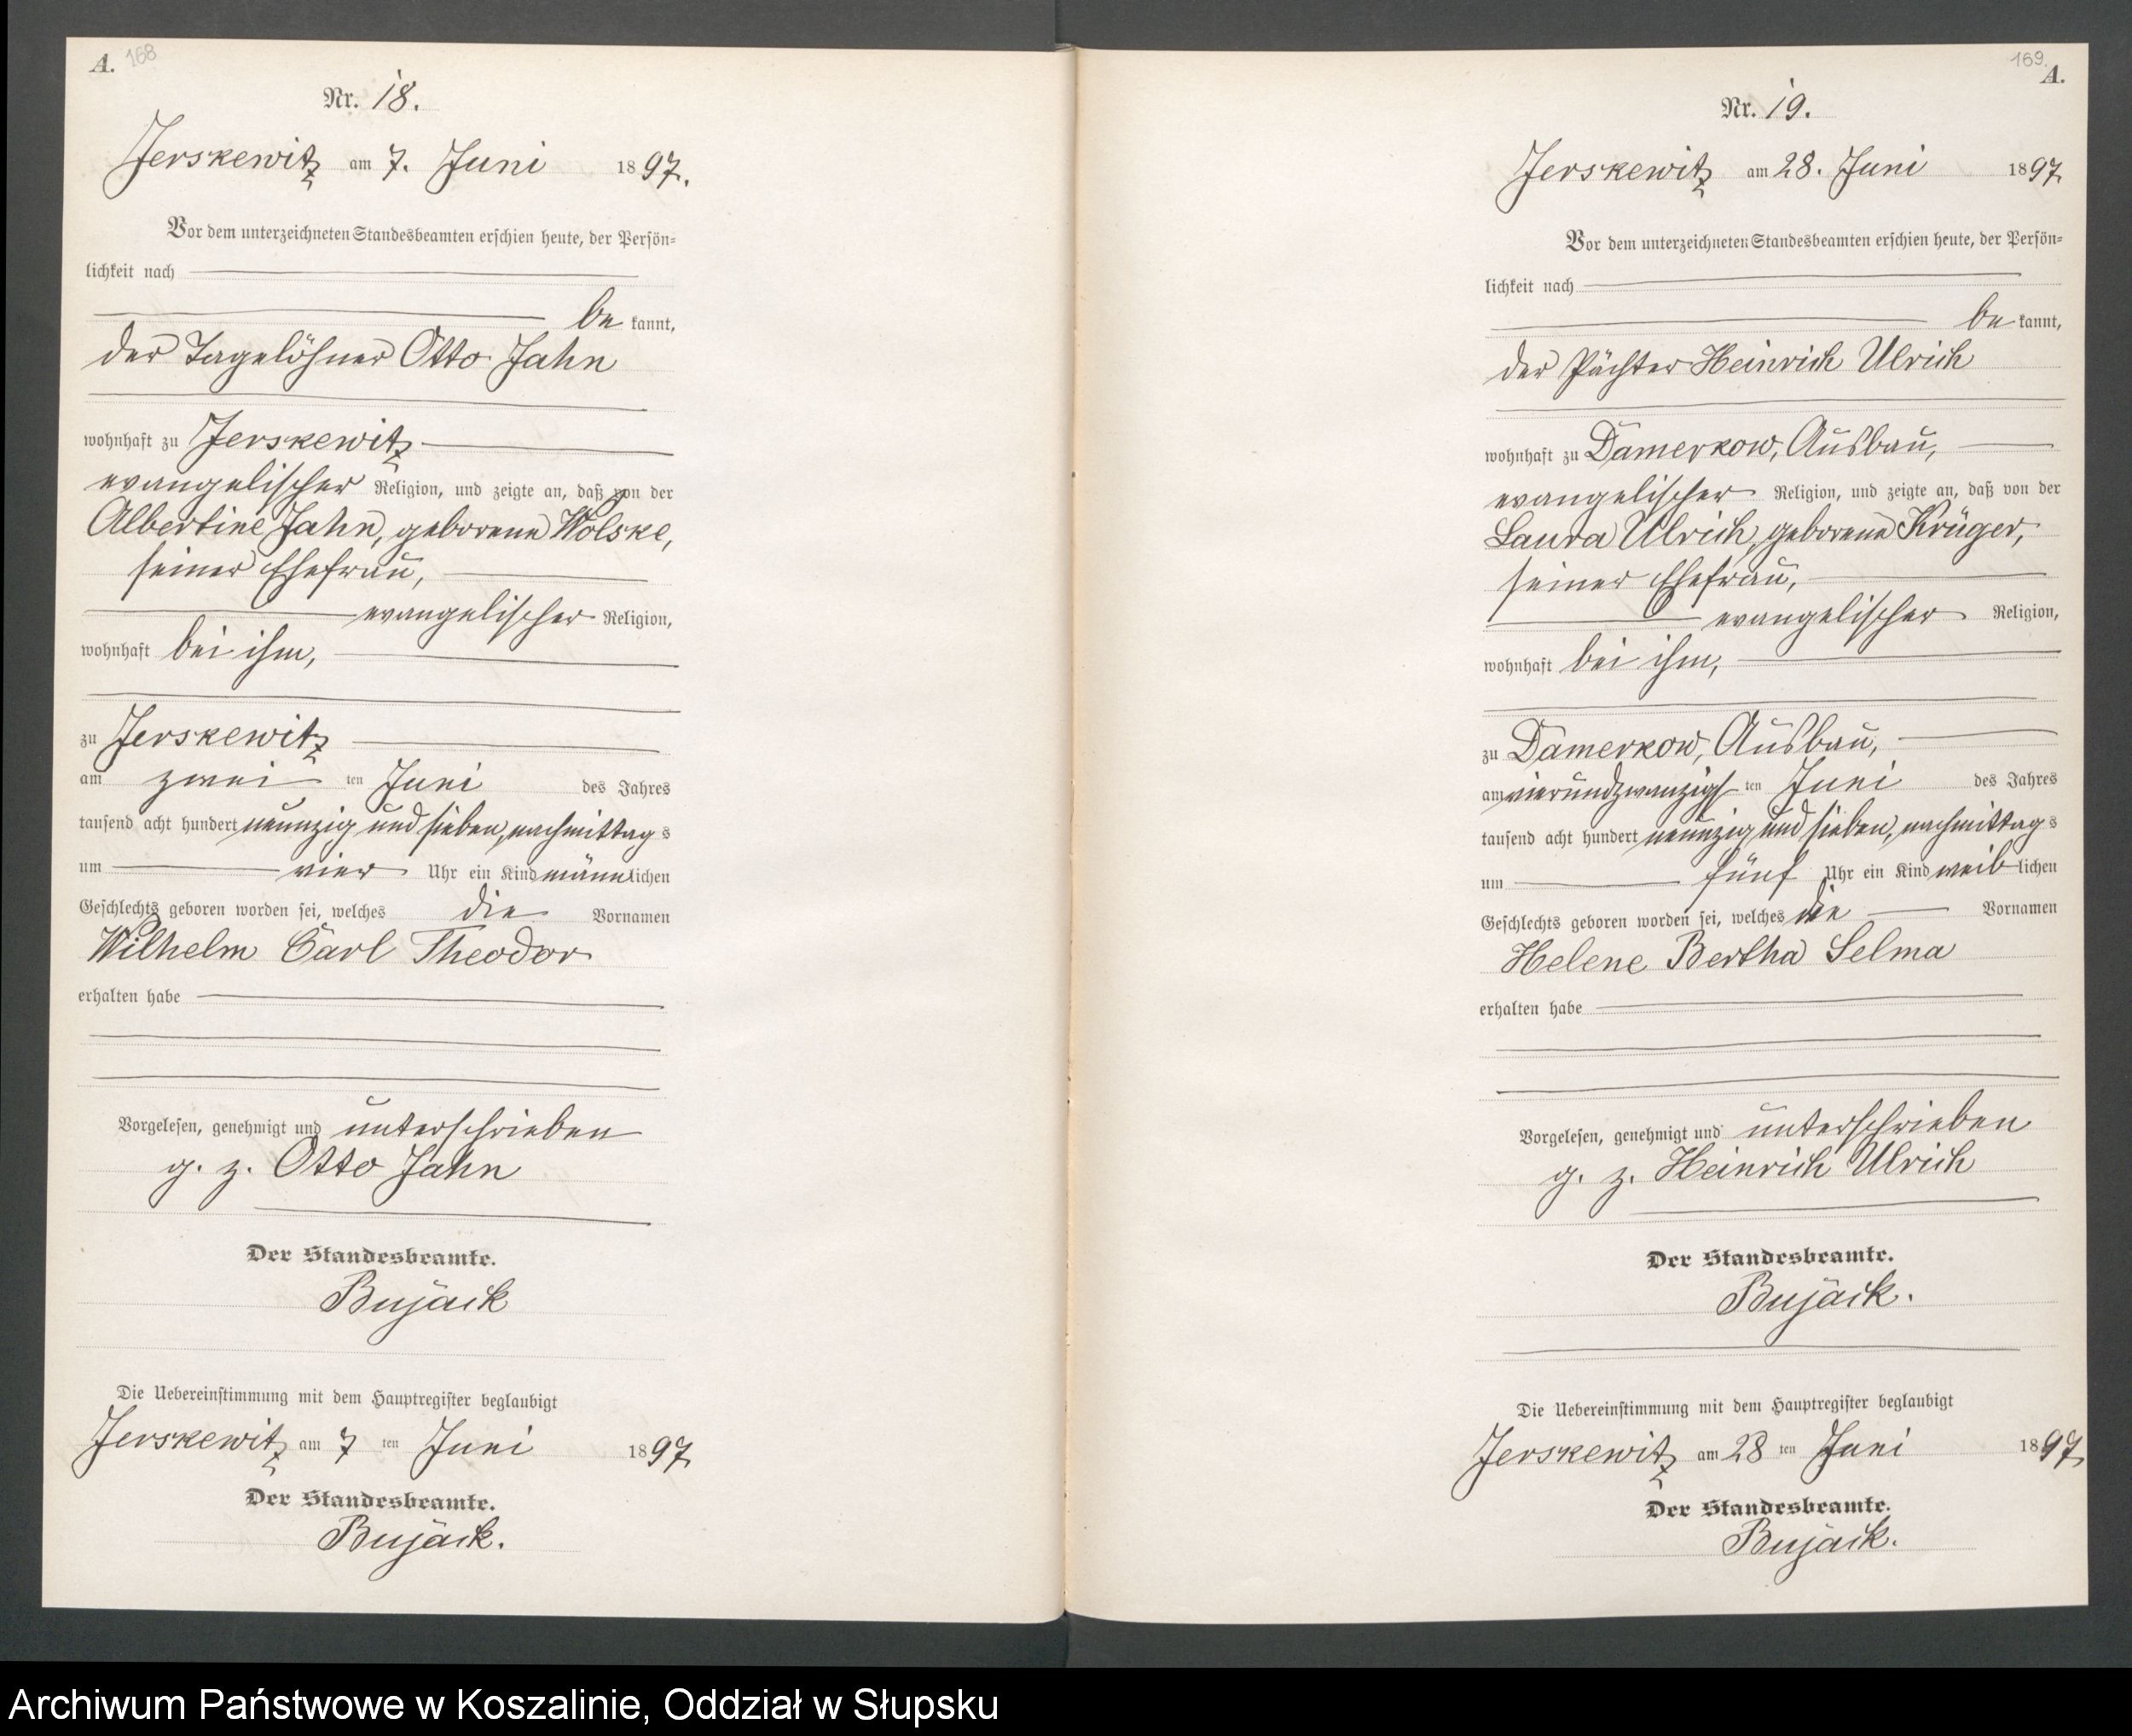 A. 168
Nr. 18.
Jerskewitz am 7. Juni 1897.
Vor dem unterzeichneten Standesbeamten erschien heute, der Persön=
lichkeit nach
be kannt,
der Tagelöhner Otto Jahn
wohnhaft zu Jerskewitz
evangelischer Religion, und zeigte an, daß von der
Albertine Jahn, geborene Wolske,
seiner Ehefrau,
evangelischer Religion,
wohnhaft bei ihm,
zu Jerskewitz
am zwei ten Juni des Jahres
tausend acht hundert neunzig und sieben, nachmittag s
um vier Uhr ein Kind männlichen
Geschlechts geboren worden sei, welches die Vornamen
Wilhelm Carl Theodor
erhalten habe
Vorgelesen, genehmigt und unterschrieben
g. z. Otto Jahn
Der Standesbeamte.
Bujack
Die Uebereinstimmung mit dem Hauptregister beglaubigt
Jerskewitz am 7 ten Juni 1897
Der Standesbeamte.
Bujack.
169. A.
Nr. 19.
Jerskewitz am 28. Juni 1897
Vor dem unterzeichneten Standesbeamten erschien heute, der Persön=
lichkeit nach
be kannt,
der Pächter Heinrich Ulrich
wohnhaft zu Damerkow, Ausbau,
evangelischer Religion, und zeigte an, daß von der
Laura Ulrich, geborene Krüger,
seiner Ehefrau,
evangelischer Religion,
wohnhaft bei ihm,
zu Damerkow, Ausbau,
am vierundzwanzigs ten Juni des Jahres
tausend acht hundert neunzig und sieben, nachmittag s
um fünf Uhr ein Kind weib lichen
Geschlechts geboren worden sei, welches die Vornamen
Helene Bertha Selma
erhalten habe
Vorgelesen, genehmigt und unterschrieben
g. z. Heinrich Ulrich
Der Standesbeamte.
Bujack.
Die Uebereinstimmung mit dem Hauptregister beglaubigt
Jerskewitz am 28 ten Juni 1897
Der Standesbeamte.
Bujack.
Archiwum Państwowe w Koszalinie, Oddział w Słupsku